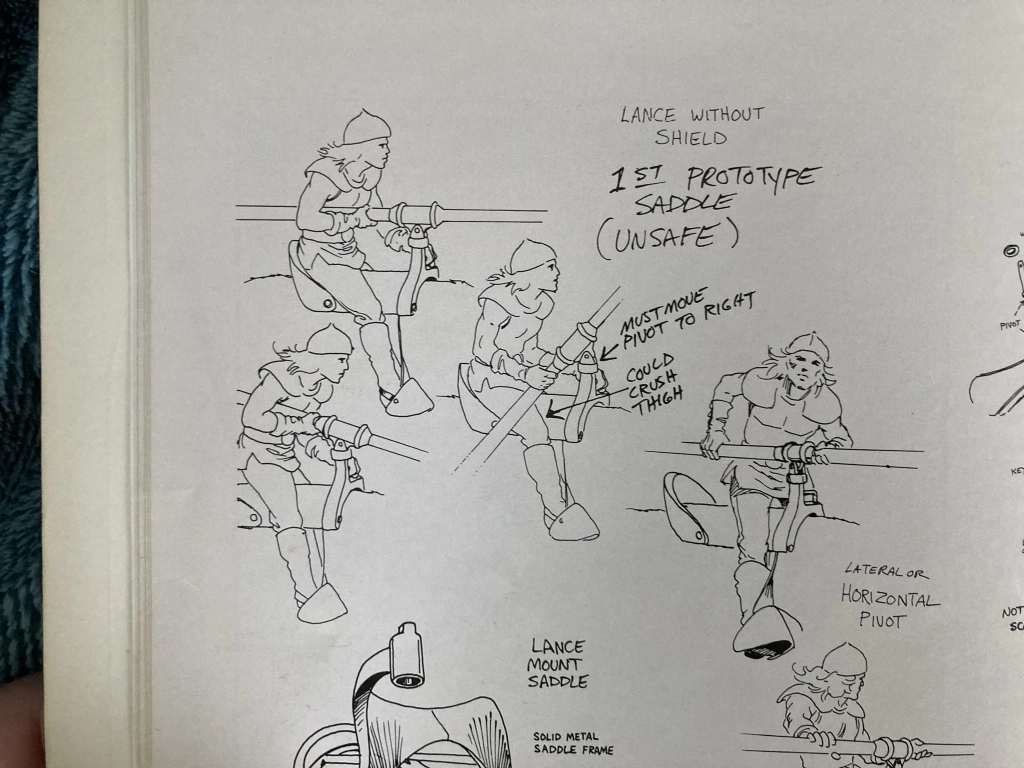 LANCE WITHOUT
SHIELD
1ST PROTOTYPE
SADDLE
(UNSAFE)
MUST MOVE
PIVOT TO RIGHT
COULD
CRUSH
THIGH
LATERAL OR
HORIZONTAL
PIVOT
LANCE
MOUNT
SADDLE
SOLID METAL
SADDLE FRAME
PIVOT